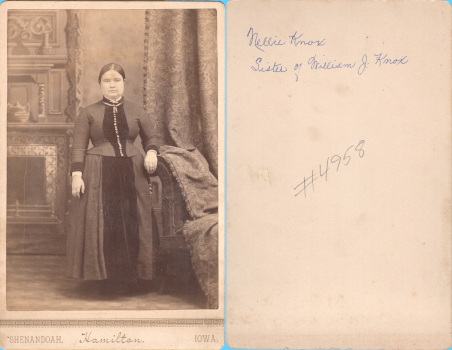 SHENANDOAH, Hamilton. IOWA.
Nellie Knox
Sister of William J. Knox
#4958